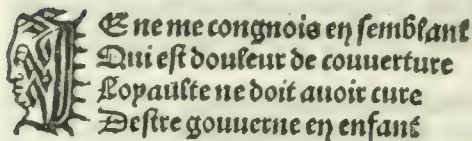 JE ne me congnois en semblant
Qui est douleur de couuerture
Loyaulte ne doit auoir cure
Destre gouuerne en enfant